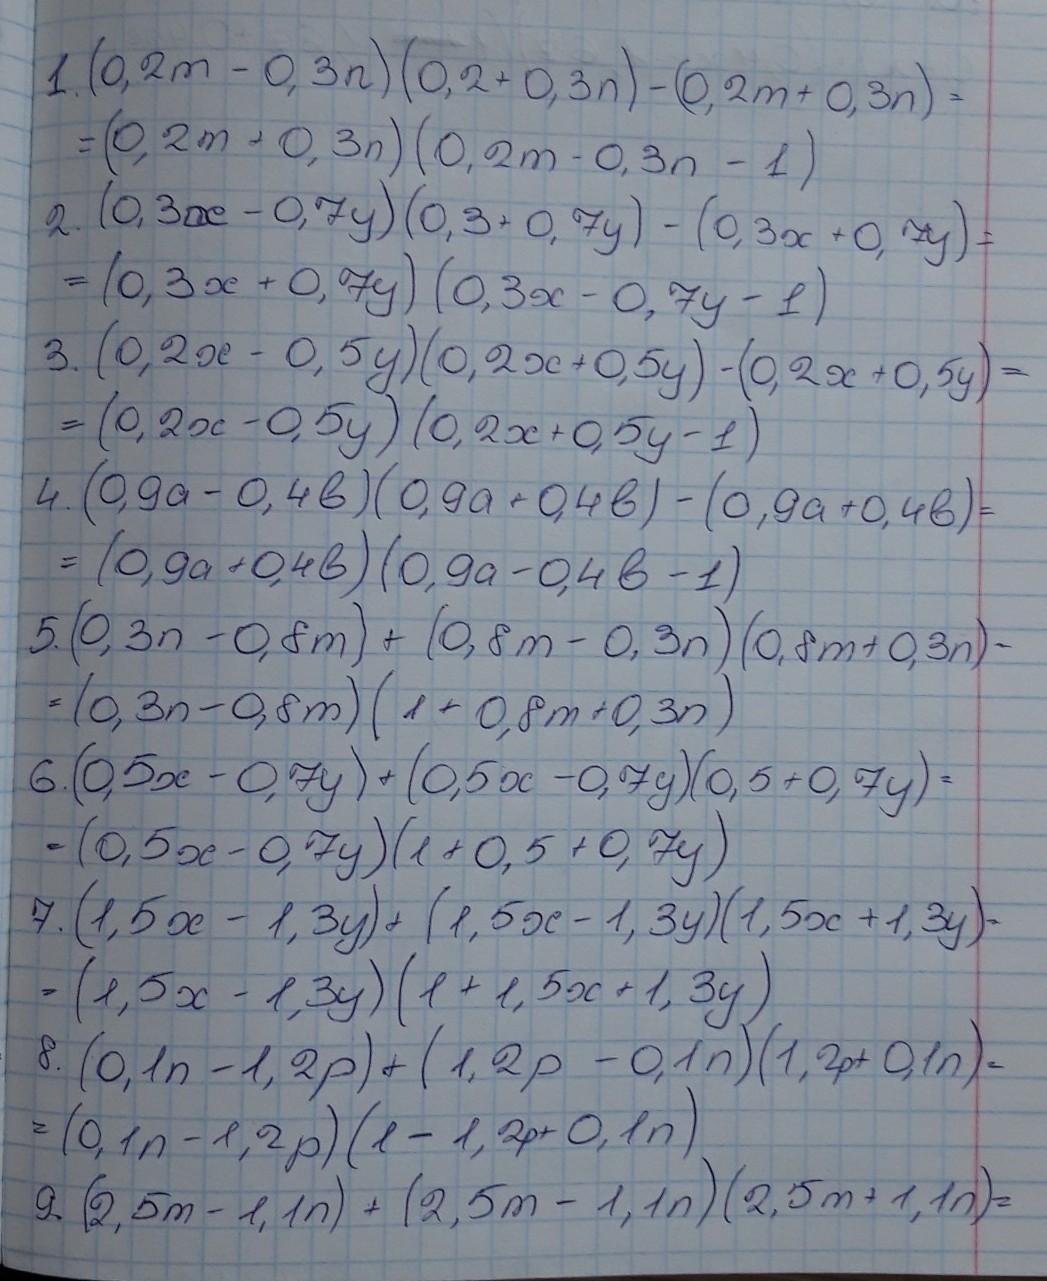 1. (0,2m - 0,3n)(0,2 + 0,3n) - (0,2m + 0,3n) =
= (0,2m + 0,3n)(0,2m - 0,3n - 1)
2. (0,3x - 0,7y)(0,3 + 0,7y) - (0,3x + 0,7y) =
= (0,3x + 0,7y)(0,3x - 0,7y - 1)
3. (0,2x - 0,5y)(0,2x + 0,5y) - (0,2x + 0,5y) =
= (0,2x - 0,5y)(0,2x + 0,5y - 1)
4. (0,9a - 0,4в)(0,9a + 0,4в) - (0,9a + 0,4в) =
= (0,9a + 0,4в)(0,9a - 0,4в - 1)
5. (0,3n - 0,8m) + (0,8m - 0,3n)(0,8m + 0,3n) =
= (0,3n - 0,8m)(1 + 0,8m + 0,3n)
6. (0,5x - 0,7y) + (0,5x - 0,7y)(0,5 + 0,7y) =
= (0,5x - 0,7y)(1 + 0,5 + 0,7y)
7. (1,5x - 1,3y) + (1,5x - 1,3y)(1,5x + 1,3y) =
= (1,5x - 1,3y)(1 + 1,5x + 1,3y)
8. (0,1n - 1,2p) + (1,2p - 0,1n)(1,2p + 0,1n) =
= (0,1n - 1,2p)(1 - 1,2p + 0,1n)
9. (2,5m - 1,1n) + (2,5m - 1,1n)(2,5m + 1,1n) =